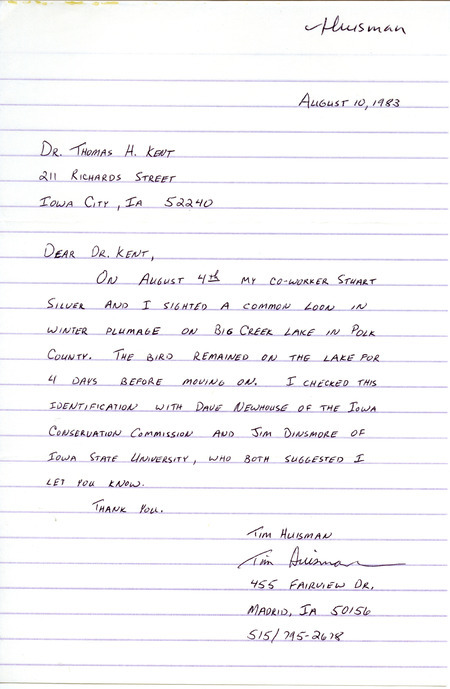 Huisman
August 10, 1983
Dr. Thomas H. Kent
211 Richards Street
Iowa City, IA 52240
Dear Dr. Kent,
On August 4th my co-worker Stuart
Silver and I sighted a common loon in
winter plumage on Big Creek Lake in Polk
County. The bird remained on the lake for
4 days before moving on. I checked this
identification with Dave Newhouse of the Iowa
Conservation Commission and Jim Dinsmore of
Iowa State University, who both suggested I
let you know.
Thank you.
Tim Huisman
Tim Huisman
455 Fairview Dr.
Madrid, IA 50156
515/795-2678